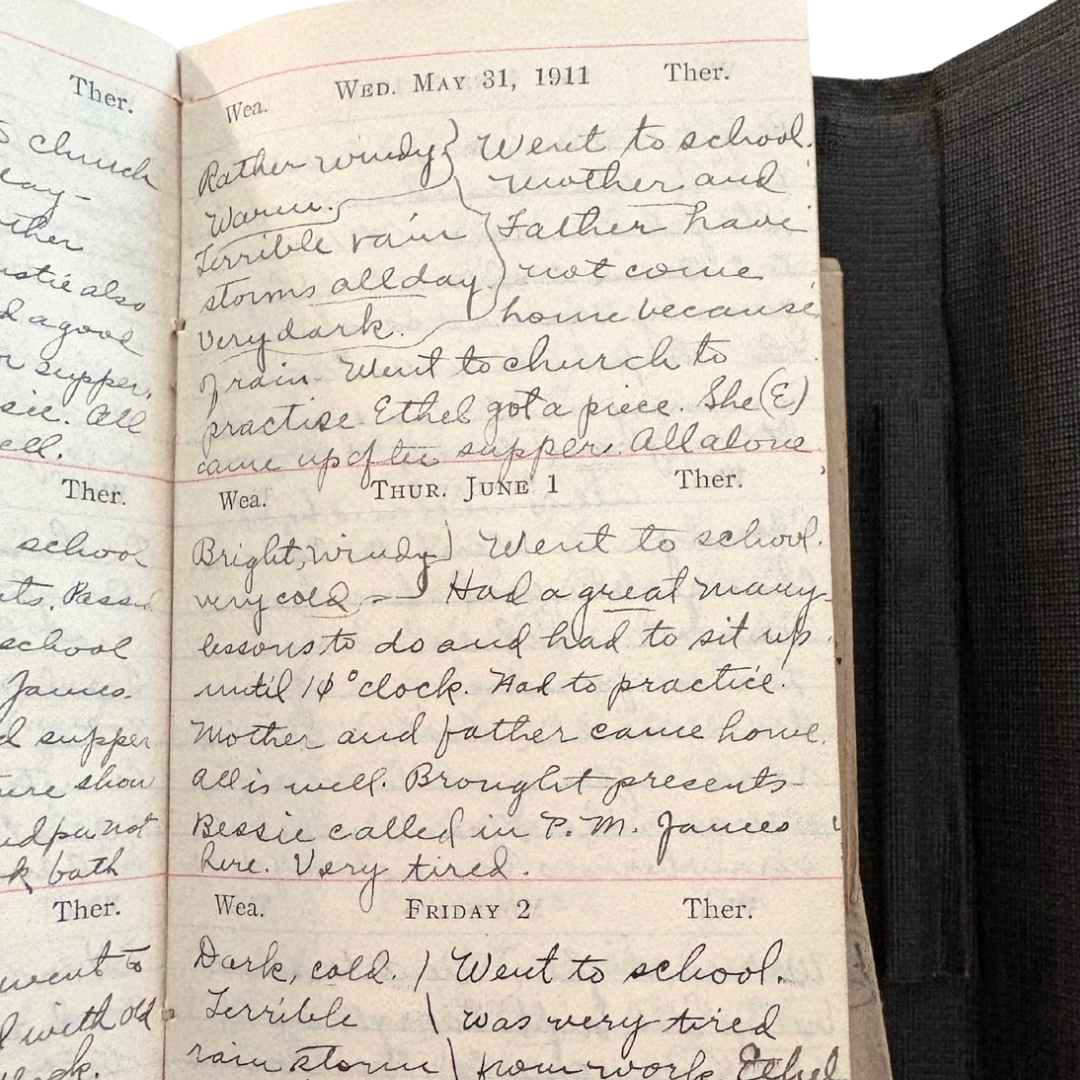 Ther.
church
ther
also
a good
supper,
All
Ther.
school
school
James
supper
show
not
bath
Ther.
went to
with old
Wed. May 31, 1911
Wea.
Ther.
Rather windy } Went to school.
Warm. Mother and
Terrible rain Father have
storms all day. not come
Very dark. home because
of rain. Went to church to
practise. Ethel got a piece. She (E)
came up after supper. All alone
Wea.
Thur. June 1
Ther.
Bright, windy ) Went to school.
very cold Had a great many
lessons to do and had to sit up
until 10 o'clock. Had to practice.
Mother and father came home.
All is well. Brought presents-
Bessie called in P.M. James
here. Very tired.
Wea.
Friday 2
Ther.
Dark, cold. ) Went to school.
Terrible \ was very tired
rain storm \ from work. Ethel